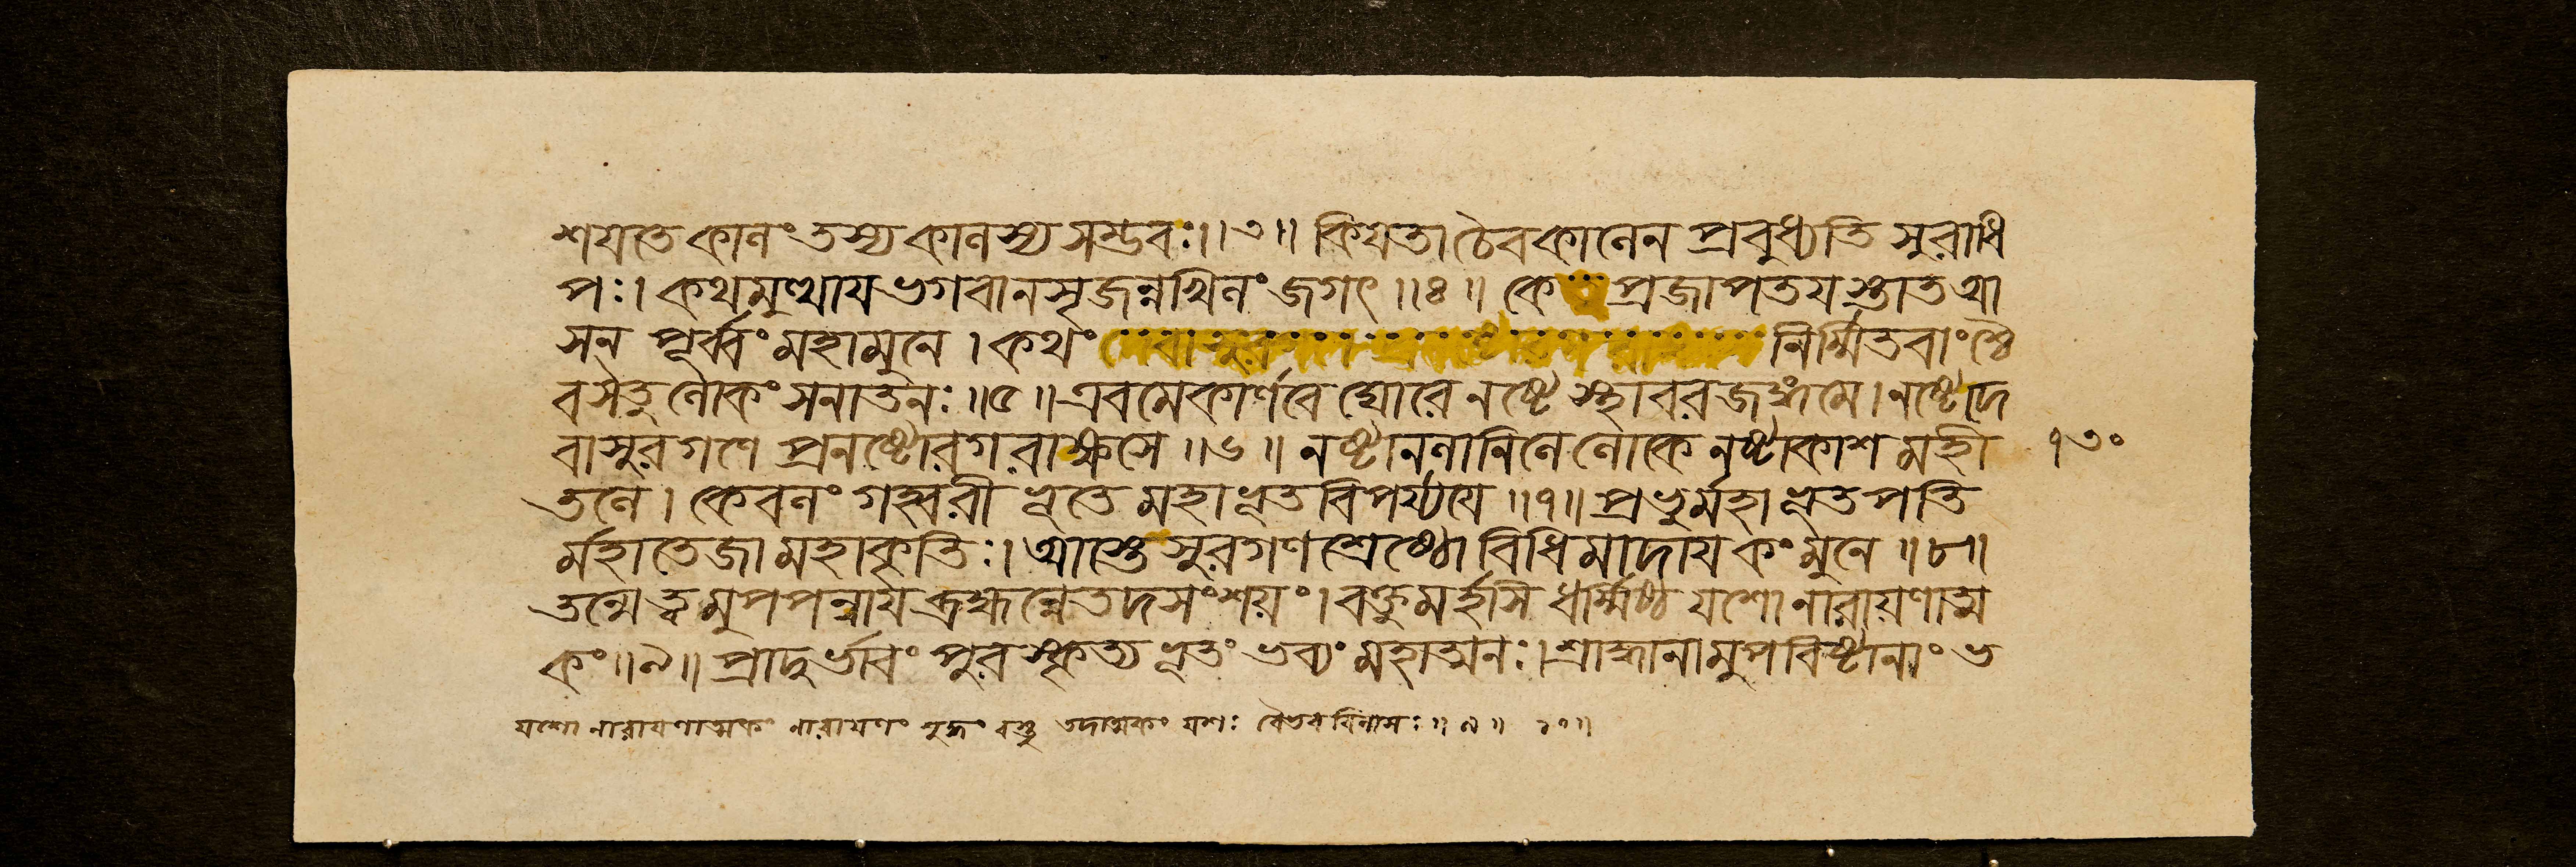 শযতে কালং তস্য কালস্য সম্ভবঃ॥৩॥ কিয়তা চৈব কালেন প্রবুধ্যতি সুরাধি
পঃ। কথমুত্থায ভগবানসৃজন্নখিলং জগৎ॥৪॥ কে প্রজাপতযস্তাত আ
সন পূর্ব্বং মহামুনে। কথং নির্ম্মিতবাংশ্চৈ
বসৈতুলোকং সনাতনঃ॥৫॥ এবমেকার্ণবে ঘোরে নষ্টে স্থাবরজঙ্গমে। নষ্টে দে
বাসুরগণে প্রনষ্টোরগরাক্ষসে॥৬॥ নষ্টানলানিলে লোকে নষ্টাকাশমহী
তলে। কেবলং গহ্বরীভূতে মহাভূতবিপর্য্যযে॥৭॥ প্রভুর্মহাভূতপতি
র্মহাতেজা মহাকৃতিঃ। আস্তে সুরগণশ্রেষ্ঠো বিধিমাদায কং মুনে॥৮॥
তন্মে ত্বমুপপন্নায ব্রহ্মন্নেতদসংশয়ং। বক্তুমর্হসি ধর্ম্মিষ্ঠ যশো নারায়ণাত্ম
কং॥৯॥ প্রাদুর্ভাবং পুরস্কৃত্য ভূতং ভব্যং মহাত্মনঃ। শ্রাদ্ধানামুপবিষ্টানাং ভ
১৩০
যশো নারাযণাত্মকং নারাযণং বস্তু তদাত্মকং যশঃ বৈভববিলাসঃ॥৯॥ ১০॥